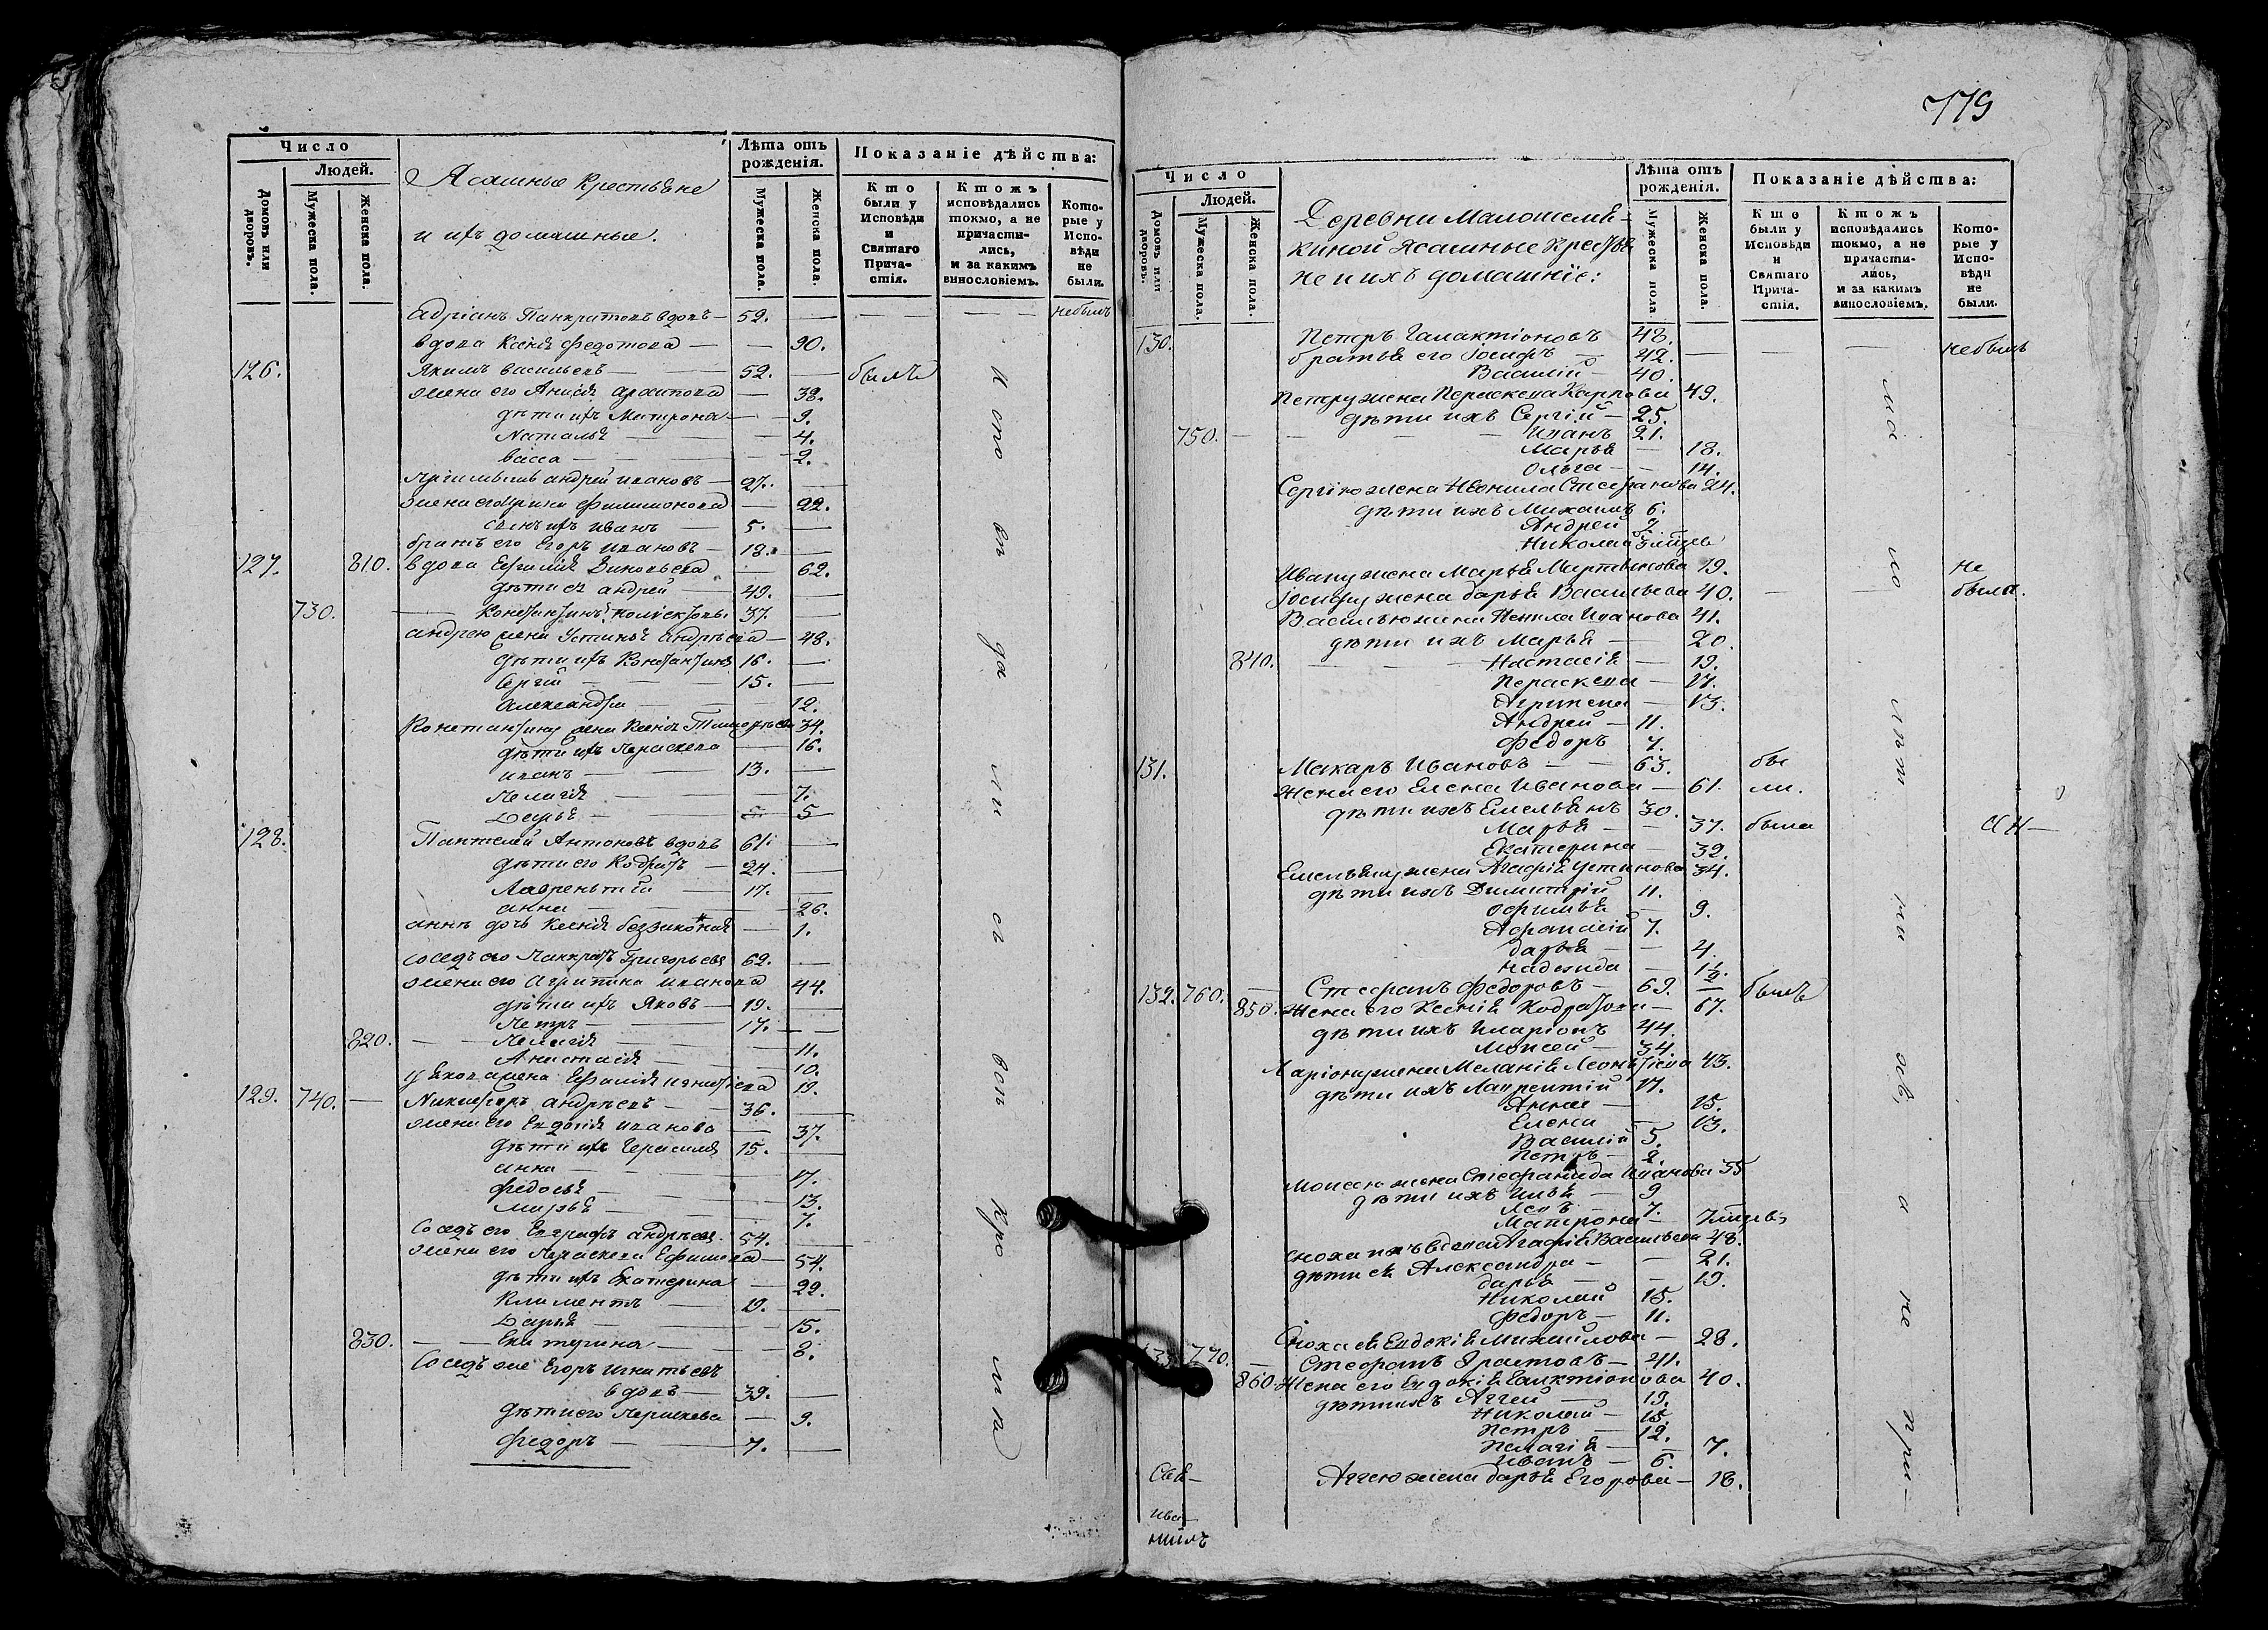 Число
Людей.
Домовъ или дворовъ.
Мужеска пола.
Женска пола.
Ясашные Крестьяне
и ихъ домашные.
Лѣта отъ рожденія.
Мужеска пола.
Женска пола.
Показаніе дѣйства:
Кто были у Исповѣди и Святаго Прича-стія.
Ктожъ исповѣдались токмо, а не причасти-лись, и за какимъ винословіемъ.
Кото-рые у Испо-вѣди не были.
Адріанъ Панкратовъ вдовъ — 59. — небылъ
вдова Ксенія Федотова — 90.
126. Якимъ Васильевъ — 52. — былъ
жена его Анисія — 38.
дѣти ихъ Матрона — 9.
Наталья — 4.
Васса — 2.
Андрей Ивановъ — 27.
жена его Ирина Филимонова — 22.
сынъ ихъ Иванъ — 5.
братъ его Егоръ Ивановъ — 18.
127. 810. вдова Зиновьева — 62.
дѣти ея Андрей — 49.
730. — Константинъ — 37.
Андрею жена Устинья Андрѣева — 48.
дѣти ихъ Константинъ 16.
Сергей — 15.
Александра — 12.
Константину жена Ксенія — 34.
дѣти ихъ Параскева — 16.
Иванъ — 13.
Пелагія — 7.
Дарья — 5
128. Пантелей Антоновъ вдовъ 61.
дѣти его Кодратъ — 24.
Лаврентій — 17.
Анна — 26.
Аннѣ дочь Ксенія беззаконая — 1.
сосѣдъ его Панкратъ Григорьевъ 62.
жена его Агрипина Иванова 44.
дѣти ихъ Яковъ — 19.
Петръ — 17.
820. — Пелагія — 11.
Анастасія — 10.
Якова жена Ефимія — 19.
129. 740. — Никифоръ Андрѣевъ — 36.
жена его Евдокія Иванова — 37.
дѣти ихъ 15.
Анна — 17.
Федосья — 13.
Марья — 7.
Сосѣдъ его Евграфъ Андрѣевъ 54.
жена его Параскева Ефимова — 54.
дѣти ихъ Екатерина — 22.
Климентъ — 19.
Дарья — 15.
830. — Екатерина — 8.
Сосѣдъ же Егоръ Игнатьевъ
вдовъ — 39.
дѣти его Параскева — 9.
Федоръ — 7.
779
Число
Людей.
Домовъ или дворовъ.
Мужеска пола.
Женска пола.
Деревни
киной Ясашные Крестья
не и ихъ домашніе:
Лѣта отъ рожденія.
Мужеска пола
Женска пола.
Показаніе дѣйства:
Кто были у Исповѣди и Святаго Прича-стія.
Ктожъ исповѣдались токмо, а не причасти-лись, и за какимъ винословіемъ.
Кото-рые у Испо-вѣди не были.
130. Петръ Галактіоновъ 48.
братья его Іосифъ — 42. — небылъ
Василій — 40.
Петру жена Параскева Карпова 49.
дѣти ихъ Сергій — 25.
750. — Иванъ 21.
Марья — 18.
Ольга — 14.
Сергію жена Неонила Стефанова 24.
дѣти ихъ Михаилъ 6.
Андрей 2.
Николай
Ивану жена Марья Мартынова 19. не
Іосифу жена Дарья Васильева 40. — были.
Василью жена Иванова 41.
дѣти ихъ Марья — 20.
840. — Настасія — 19.
Параскева — 17.
Агрипена — 13.
Андрей — 11.
Федоръ 7.
131. Макаръ Ивановъ — 63. бы
Жена его Елена Иванова — 61. ли.
дѣти ихъ Емельянъ 30.
Марья — 37. была
Екатерина — 32.
Емельяну жена Агафія Устинова 34.
дѣти ихъ Димитрій 11.
Офимья — 9.
Афанасій 7.
Дарья — 4.
Надежда — 1½.
132. 760. — Стефанъ Федоровъ — 69. — былъ
850. Жена его Ксенія Кодратова — 67.
дѣти ихъ Иларіонъ 44.
Моисей — 34.
Ларіону жена Меланія Леонтіева 43.
дѣти ихъ Лаврентій 17.
Анна — 15.
Елена — 13.
Василій 5.
Петръ — 2.
Моисею жена Стефанида Иванова 35
дѣти ихъ Илья — 9
7.
Матрона —
сноха ихъ вдова Агафія Васильева 48.
дѣти ея Александра — 21.
Дарья — 19.
Николай 15.
Федоръ — 11.
Сноха ея Евдокія Михайлова — 28.
770. — Стефанъ — 41.
860. Жена его Евдокія Галактіонова 40.
дѣти ихъ Аггей — 19.
Николай — 15.
Петръ — 12.
Пелагія — 7.
Иванъ — 6.
Аггею жена Дарья Егорова — 18.